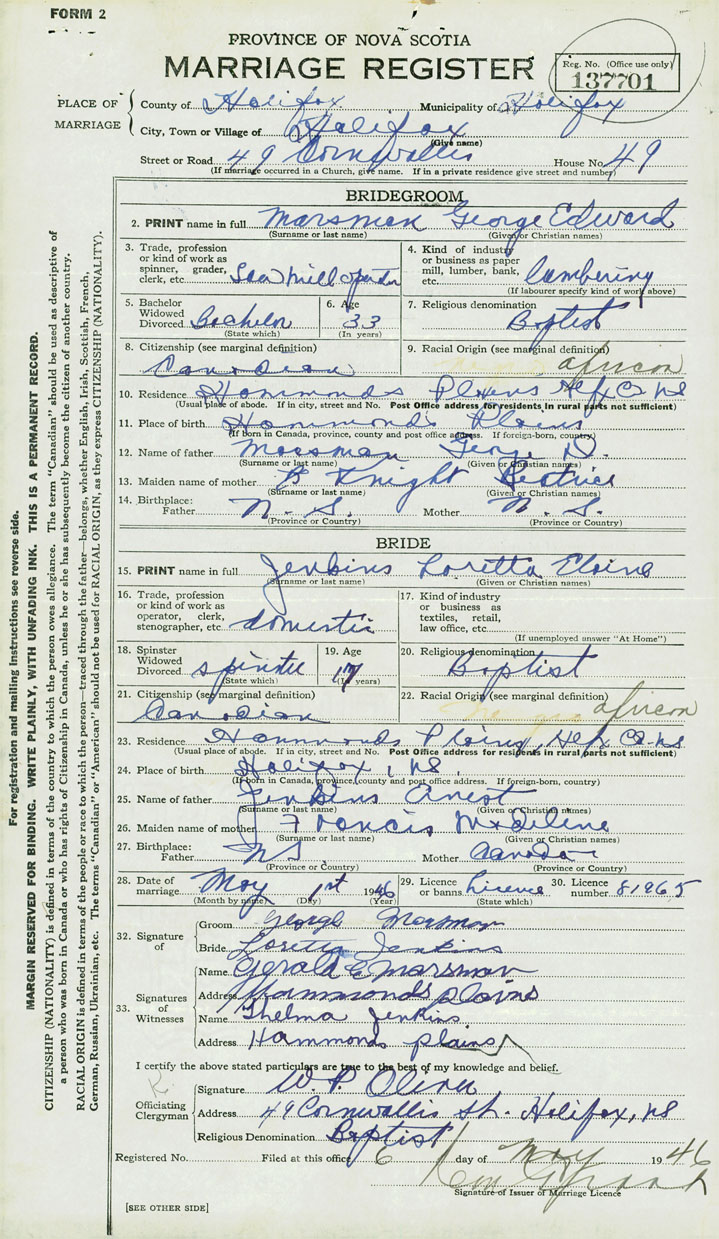 FORM 2
PROVINCE OF NOVA SCOTIA
MARRIAGE REGISTER
Reg. No. (Office use only)
137701
PLACE OF MARRIAGE
County of Halifax Municipality of Halifax
City, Town or Village of Halifax
(Give name)
Street or Road 49 Cornwallis House No. 49
(If marriage occurred in a Church, give name. If in a private residence give street and number)
BRIDEGROOM
2. PRINT name in full Marsman George Edward
(Surname or last name) (Given or Christian names)
3. Trade, profession or kind of work as spinner, grader, clerk, etc. Saw mill operator
4. Kind of industry or business as paper mill, lumber, bank, etc. lumbering
(If labourer specify kind of work above)
5. Bachelor Widowed Divorced Bachelor
(State which)
6. Age 33
(In years)
7. Religious denomination Baptist
8. Citizenship (see marginal definition) Canadian
9. Racial Origin (see marginal definition) African
10. Residence Hammonds Plains Hfx Co NS
(Usual place of abode. If in city, street and No. Post Office address for residents in rural parts not sufficient)
11. Place of birth Hammonds Plains
(If born in Canada, province, county and post office address. If foreign-born, country)
12. Name of father Marsman George D.
(Surname or last name) (Given or Christian names)
13. Maiden name of mother Knight Beatrice
(Surname or last name) (Given or Christian names)
14. Birthplace: Father N. S. Mother N. S.
(Province or Country) (Province or Country)
BRIDE
15. PRINT name in full Jenkins Loretta Elaine
(Surname or last name) (Given or Christian names)
16. Trade, profession or kind of work as operator, clerk, stenographer, etc. domestic
17. Kind of industry or business as textiles, retail, law office, etc.
(If unemployed answer "At Home")
18. Spinster Widowed Divorced spinster
(State which)
19. Age 17
(In years)
20. Religious denomination Baptist
21. Citizenship (see marginal definition) Canadian
22. Racial Origin (see marginal definition) African
23. Residence Hammonds Plains, Hfx Co. NS
(Usual place of abode. If in city, street and No. Post Office address for residents in rural parts not sufficient)
24. Place of birth Halifax, NS,
(If born in Canada, province, county and post office address. If foreign-born, country)
25. Name of father Jenkins Arnest
(Surname or last name) (Given or Christian names)
26. Maiden name of mother Francis Madeline
(Surname or last name) (Given or Christian names)
27. Birthplace: Father NS Mother Canada
(Province or Country) (Province or Country)
28. Date of marriage May 1st 1946
(Month by name) (Day) (Year)
29. Licence or banns Licence
(State which)
30. Licence number 81965
32. Signature of
Groom George Marsman
Bride Loretta Jenkins
33. Signatures of Witnesses
Name Gerald E Marsman
Address Hammonds plains
Name Thelma Jenkins
Address Hammonds plains
I certify the above stated particulars are true to the best of my knowledge and belief.
Officiating Clergyman
Signature W. P. Oliver
Address 49 Cornwallis St. Halifax, NS
Religious Denomination Baptist
Registered No. Filed at this office 6 day of May 1946
Signature of Issuer of Marriage Licence
[SEE OTHER SIDE]
For registration and mailing instructions see reverse side.
MARGIN RESERVED FOR BINDING. WRITE PLAINLY, WITH UNFADING INK. THIS IS A PERMANENT RECORD.
CITIZENSHIP (NATIONALITY) is defined in terms of the country to which the person owes allegiance. The term "Canadian" should be used as descriptive of
a person who was born in Canada or who has rights of Citizenship in Canada, unless he or she has subsequently become the citizen of another country.
RACIAL ORIGIN is defined in terms of the people or race to which the person—traced through the father—belongs, whether English, Irish, Scottish, French,
German, Russian, Ukrainian, etc. The terms "Canadian" or "American" should not be used for RACIAL ORIGIN, as they express CITIZENSHIP (NATIONALITY).